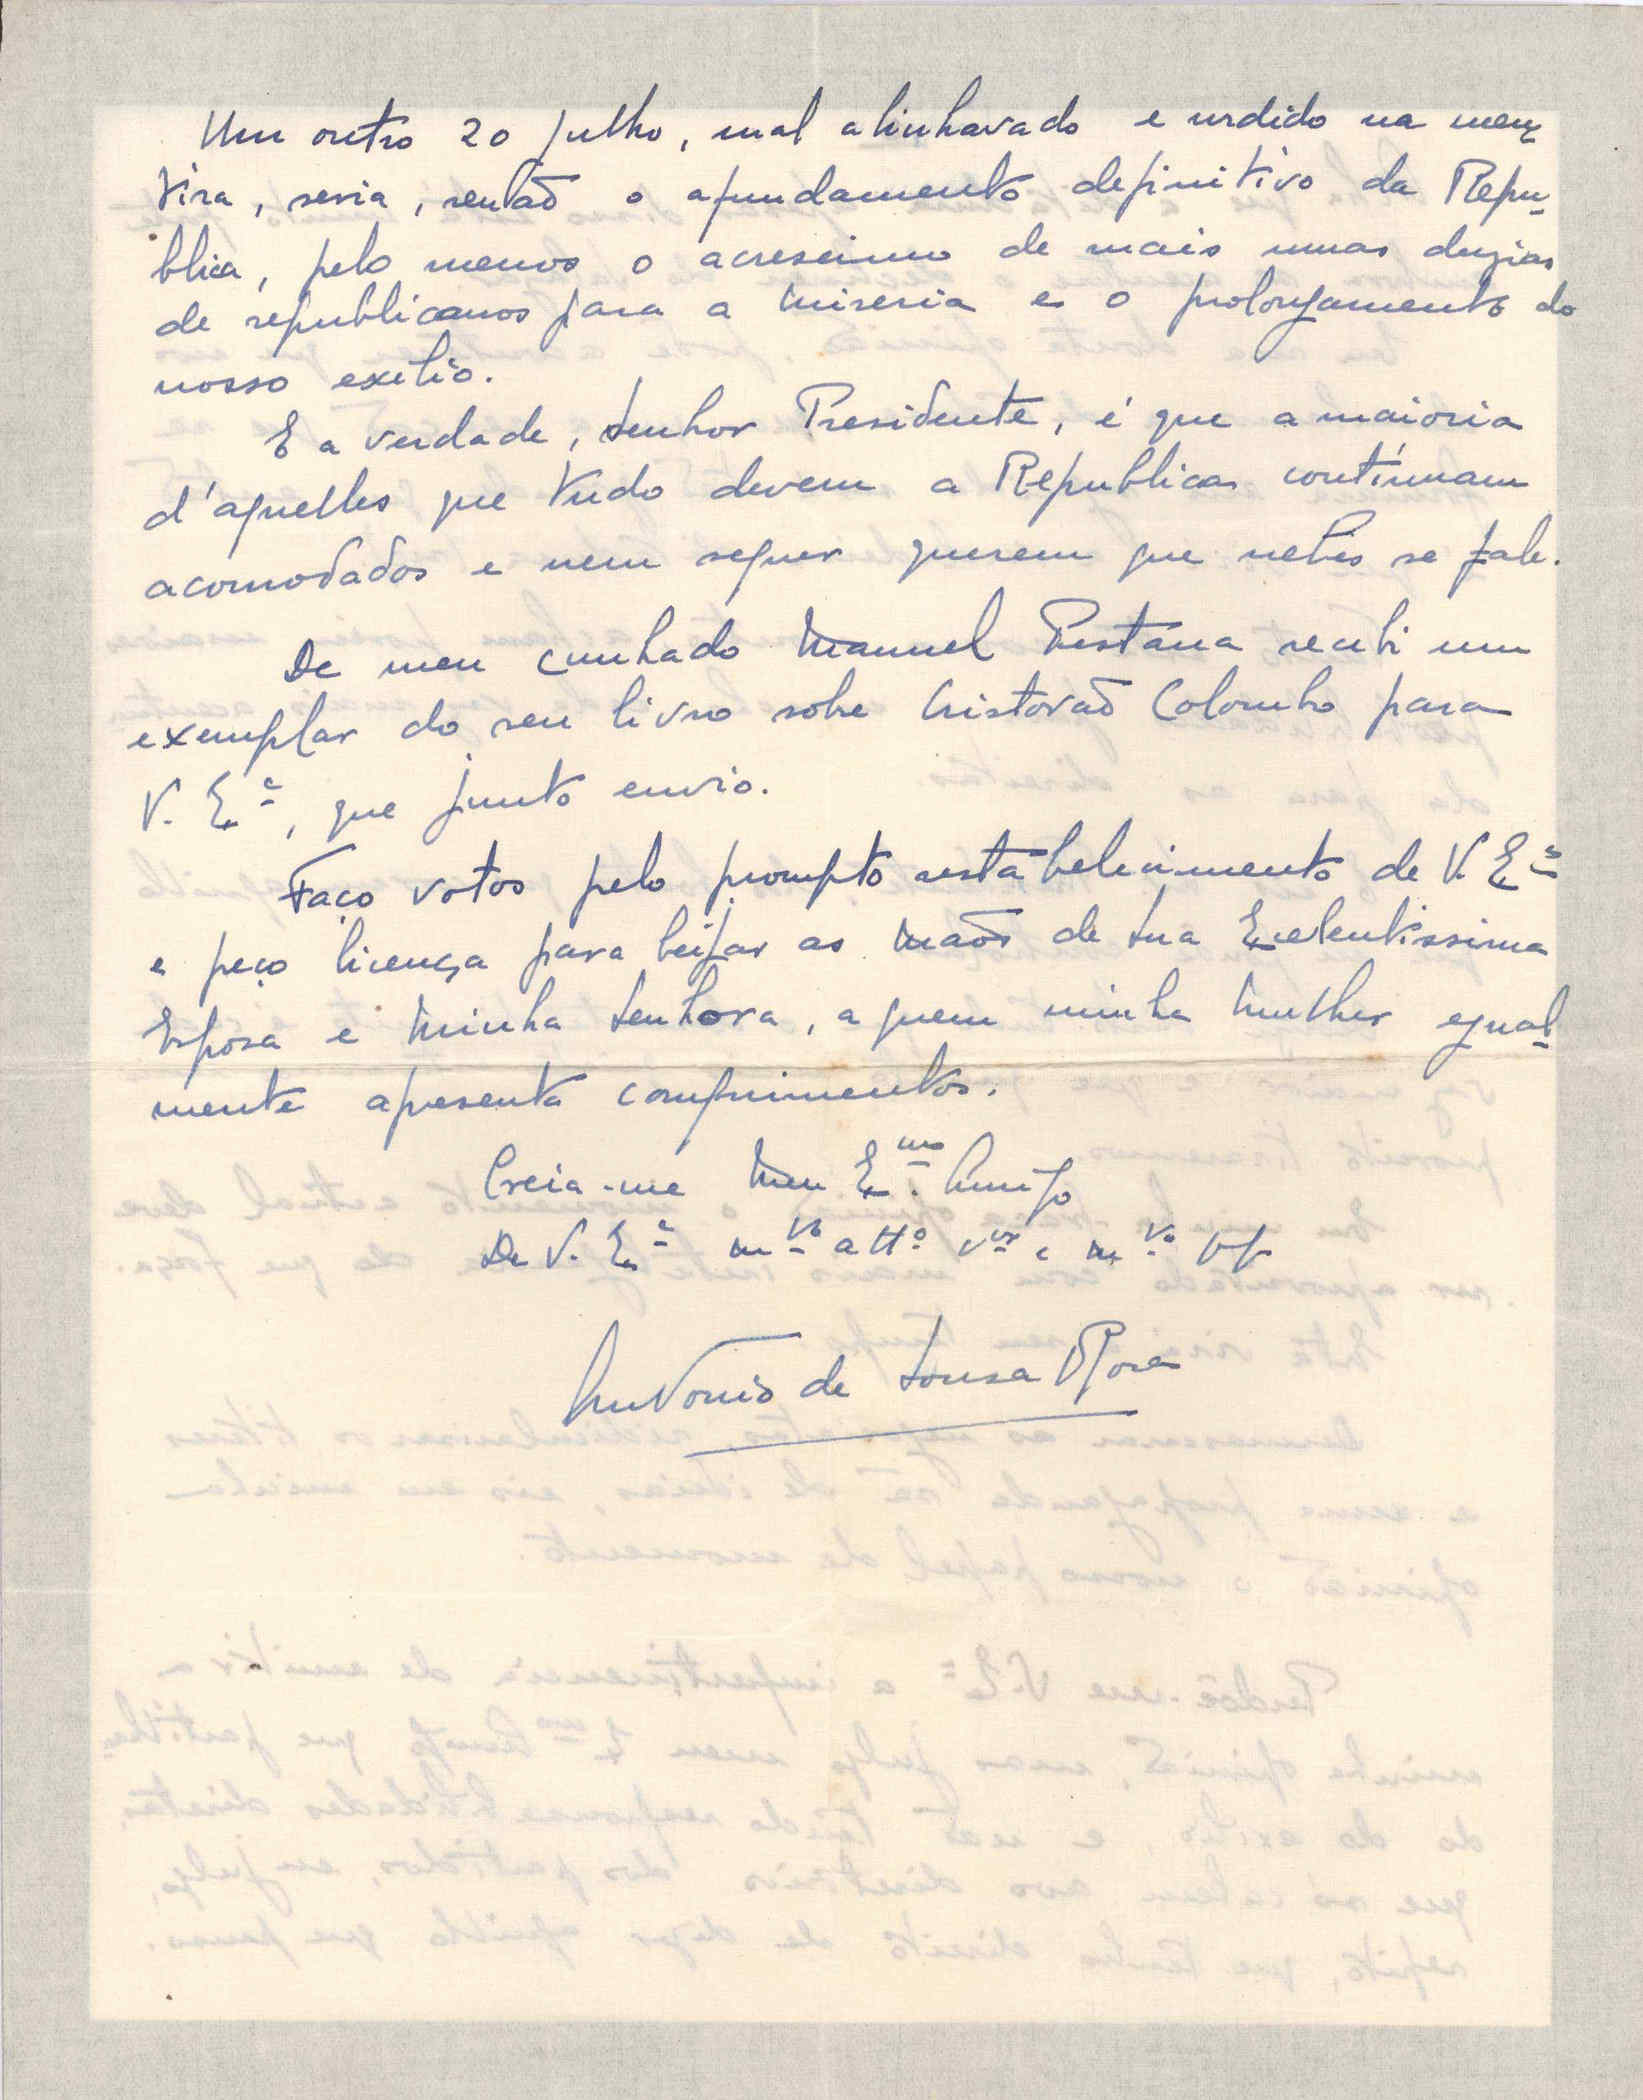 Um outro 20 Julho, mal alinhavado e urdido na men-
tira, seria, senão o afundamento definitivo da Repu-
blica, pelo menos o acrescimo de mais umas duzias
de republicanos para a miseria e o prolongamento do
nosso exilio.
E a verdade, Senhor Presidente, é que a maioria
d'aquelles que tudo devem a Republica continuam
acomodados e nem sequer querem que neles se fale.
De meu cunhado Manuel Pestana recebi um
exemplar do seu livro sobre Cristovão Colombo para
V. Exª, que junto envio.
Faço votos pelo prompto restabelecimento de V. Exª
e peço licença para beijar as mãos de Sua Excelentissima
Esposa e Minha Senhora, a quem minha Mulher egual-
mente apresenta comprimentos.
Creia-me Meu Exmo. Amigo
De V. Exª mto atto vor e mto
Antonio de Sousa Rosa